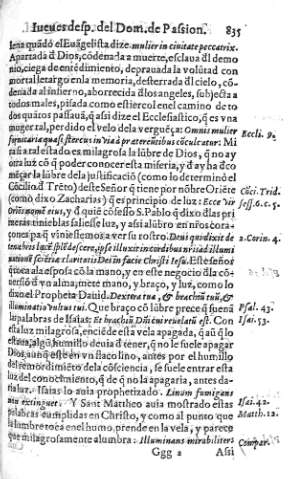 Iueues desp. del Dom. de Passion. 835
lena quãdo el Euãgelista dize mulier in ciuitate peccatrix.
Apartada d Dios, códenada a muerte, esclaua dl demo
nio, ciega de entẽdimiento, deprauada la volũtad con
mortal letargo en la memoria, desterrada dl cielo, có
denada al infierno, aborrecida dlos angeles, subjecta a
todos males, pisada como estiercol en el camino de to
dos quãtos passauã, q assi dize el Ecclesiastico, q es vna
muger tal, perdido el velo dela verguẽça: Omnis mulier
fornicaria quasi stercus in via à prætereuntibus cõculcatur: Mi
Eccli. 9.
ra si a tal estado es milagrosa la lũbre de Dios, q no ay
otra luz có q poder conocer esta miseria, y
la lũbre dela justificació (como lo determinó el
Cócilio d Trẽto) deste Señor q tiene por nõbre Oriẽte
Cóci. Trid.
(como dixo Zacharias) q es principio de luz: Ecce vir
Sess. 6. c. 5.
Oriẽs nomẽ eius, y d quiẽ cófiesso S. Pablo q dixo dlas pri
meras tinieblas saliesse luz, y assi alũbro en nr̃os cora-
çones pa q viniessemos a ver su rostro. Deus qui dixit de
2. Corin. 4.
tenebris lucẽ splẽdescere, ipse illuxit in cordibus nr̃is ad illumi
nationẽ sciẽtiæ claritatis Dei in facie Christi Iesu. Este señor
toca ala esposa có la mano, y en este negocio dla có-
uersió d vn alma, mete mano, y braço, y luz, como lo
dixo el Propheta Dauid. Dextera tua, & brachiũ tuũ, &
illuminatio vultus tui. Que braço có lũbre preçe q suenã
Psal. 43.
las palabras de Isaias: Et brachiũ Dñi cui reuelatũ est. Con
Isai. 53.
esta luz milagrosa, enciẽde esta vela apagada, q aũ q lo
estaua, algo humillo deuia d tener, q no le suele apagar
Dios, aunq este en vn flaco lino, antes por el humillo
del remordimiẽto dela cósciencia, se suele entrar esta
luz del conocimiento, q de q no la apagaria, antes da-
ria luz. Isaias lo auia prophetizado. Linum fumigans
Isai. 42.
non extinguet. Y Sant Mattheo auia mostrado estas
Matth. 12.
palabras cumplidas en Christo, y como al punto que
la lumbre toca en el humo prende en la vela, y parece
que milagrosamente alumbra: Illuminans mirabiliter
Compar.
Ggg 2 Assi